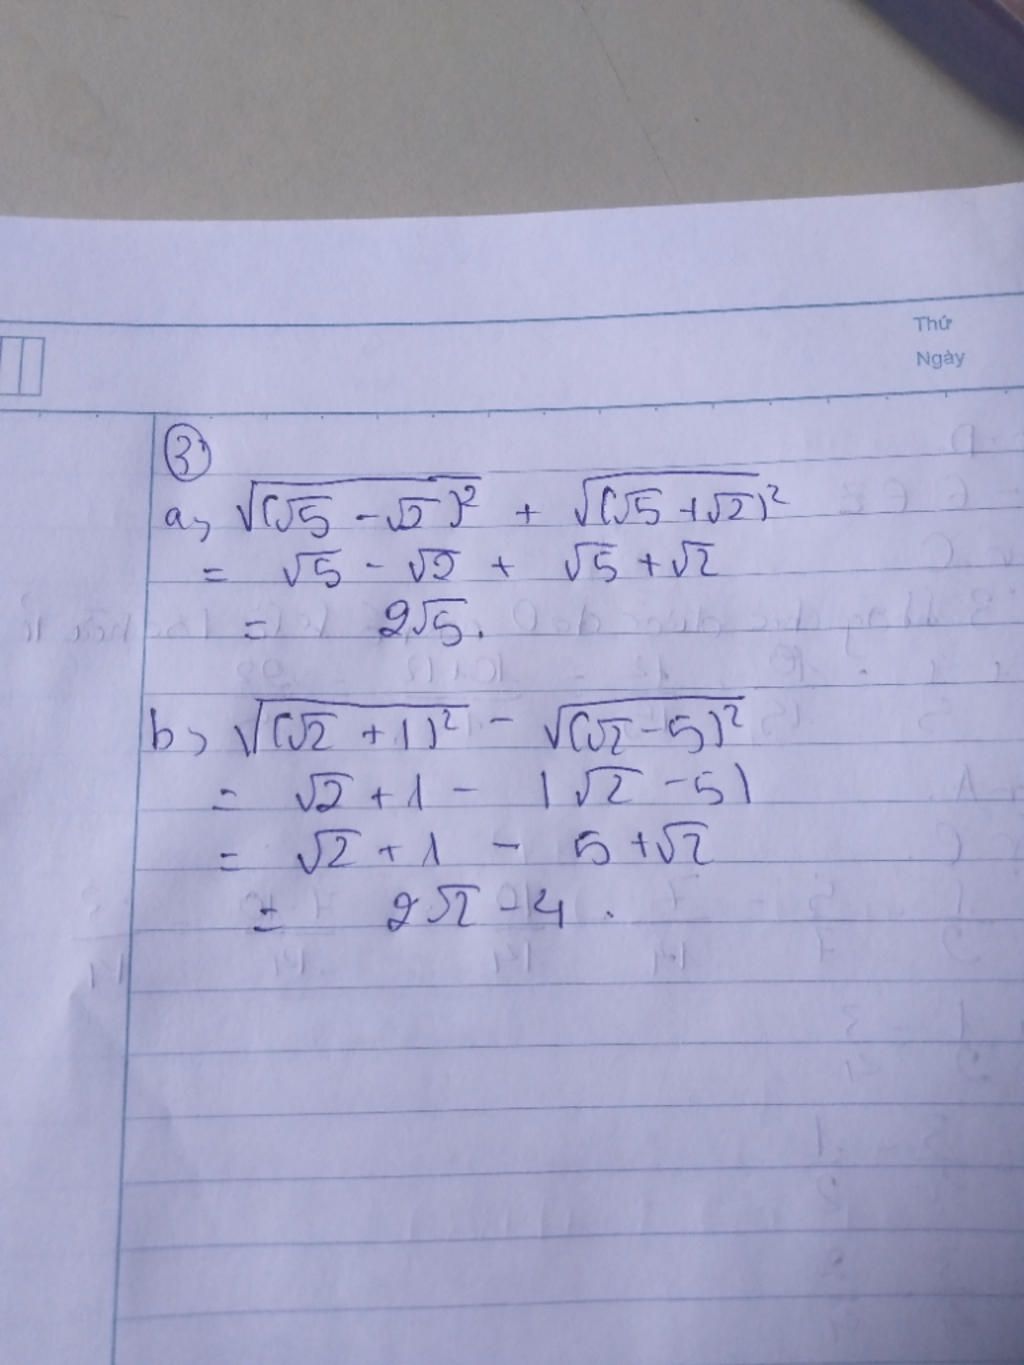 Thứ
Ngày
3
a, √(√5 - √2)² + √(√5 + √2)²
= √5 - √2 + √5 + √2
= 2√5.
b, √(√2 + 1)² - √(√2 - 5)²
= √2 + 1 - |√2 - 5|
= √2 + 1 - 5 + √2
= 2√2 - 4.